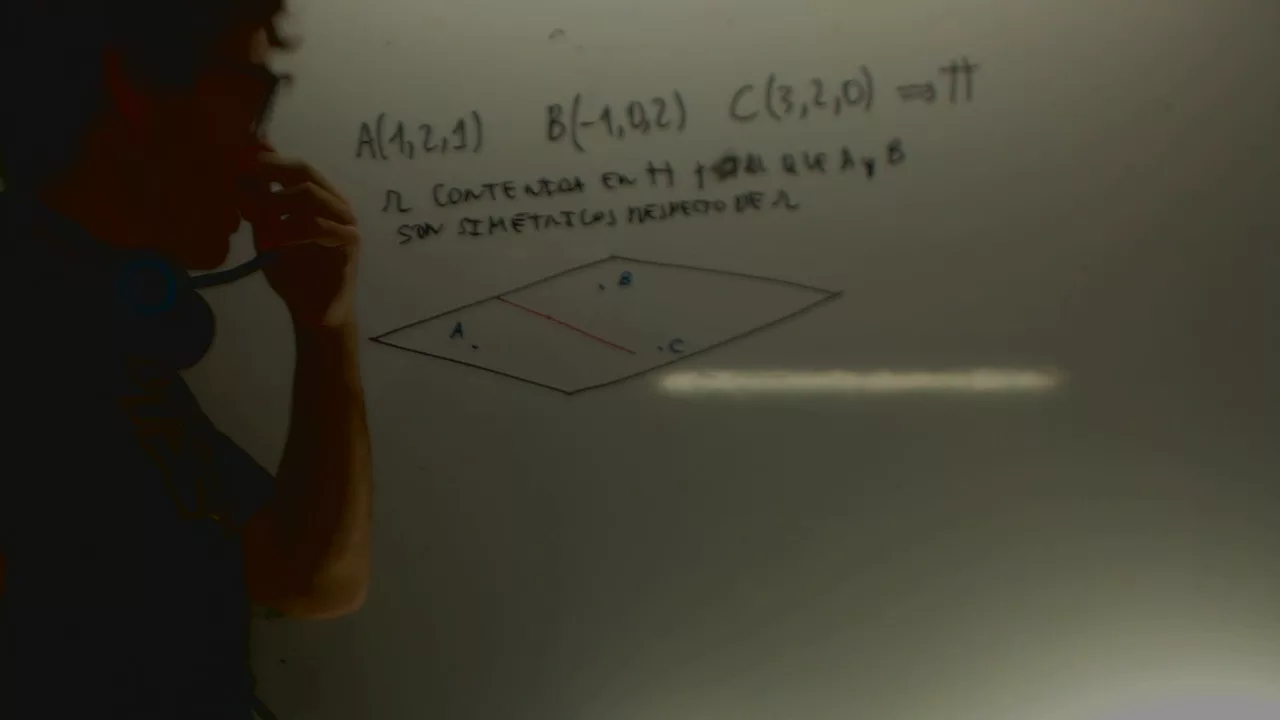 A(1,2,1) B(-1,0,2) C(3,2,0) ⇒ π
r CONTENIDA EN π QUE A y B
SON SIMÉTRICOS RESPECTO DE r
B
A
C